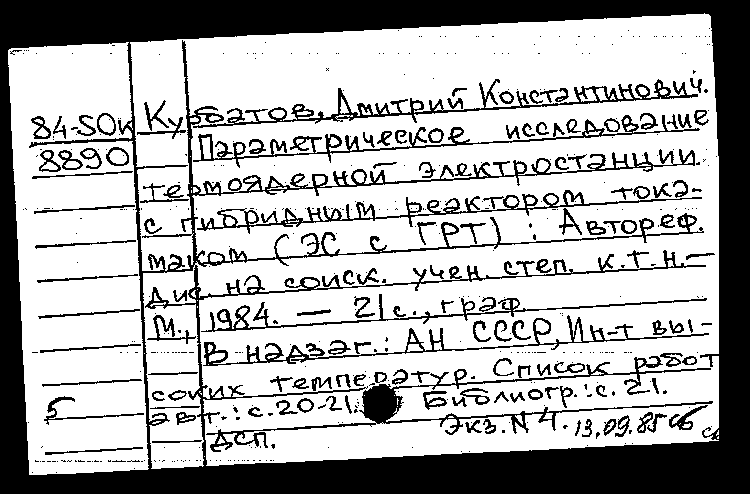 84-5Ок Курбатов, Дмитрий Константинович.
8890 Параметрическое исследование
термоядерной электростанции
с гибридным реактором тока-
маком (ЭС с ГРТ) : Автореф.
дис на соиск. учен. степ. к.т.н.—
М., 1984. — 21 с., граф.
В надзаг.: АН СССР, Ин-т вы-
соких температур. Список работ
5 авт.: с.20-21. Библиогр.: с. 21.
ДСП. Экз. N 4. 13.09.85